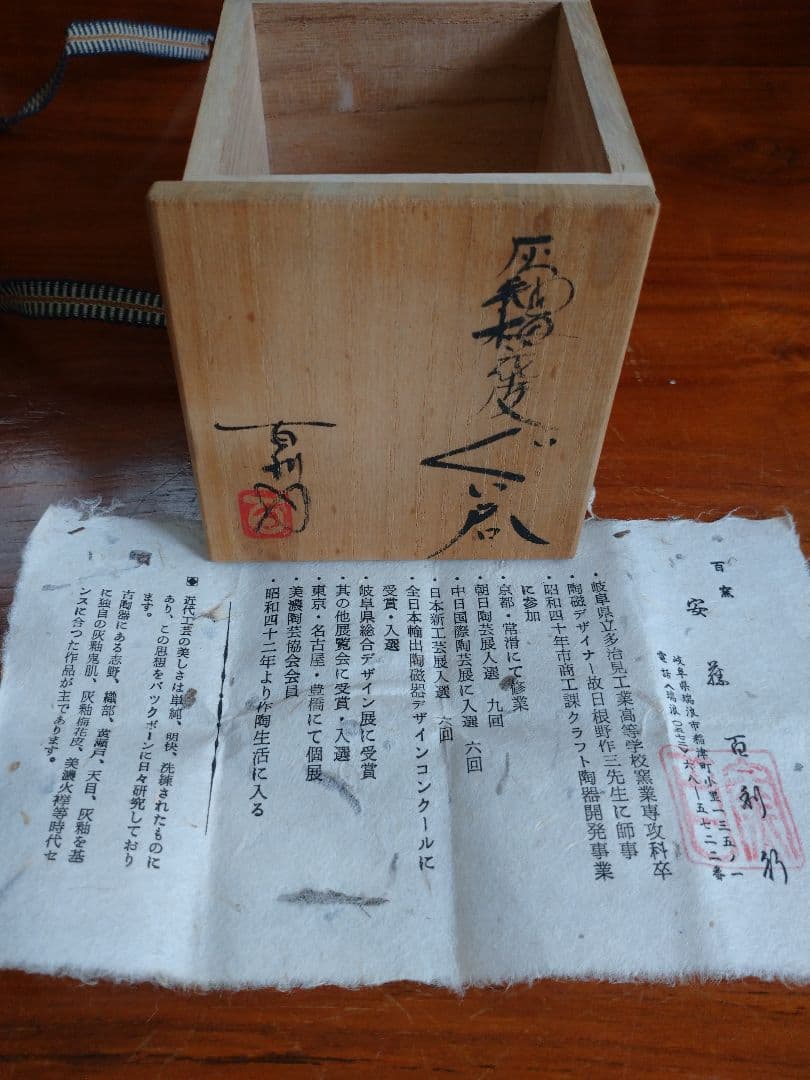 灰釉梅花皮
ぐい呑
百利
百窯
安藤百利
岐阜県瑞浪市稲津町小里一三五ノ一
電話〈瑞浪〇五七二〉六八―五七二二番
・岐阜県立多治見工業高等学校窯業専攻科卒
・陶磁デザイナー故日根野作三先生に師事
・昭和四十年市商工課クラフト陶器開発事業
に参加
・京都・常滑にて修業
・朝日陶芸展入選 九回
・中日国際陶芸展に入選 六回
・日本新工芸展入選 六回
・全日本輸出陶磁器デザインコンクールに
受賞・入選
・岐阜県総合デザイン展に受賞
・其の他展覧会に受賞・入選
・東京・名古屋・豊橋にて個展
・美濃陶芸協会会員
・昭和四十二年より作陶生活に入る
◆ 近代工芸の美しさは単純、明快、洗練されたものに
あり、この思想をバックボーンに日々研究しており
ます。
古陶器にある志野、織部、黄瀬戸、天目、灰釉を基
に独自の灰釉鬼肌、灰釉梅花皮、美濃火襷等時代セ
ンスに合つた作品が主であります。